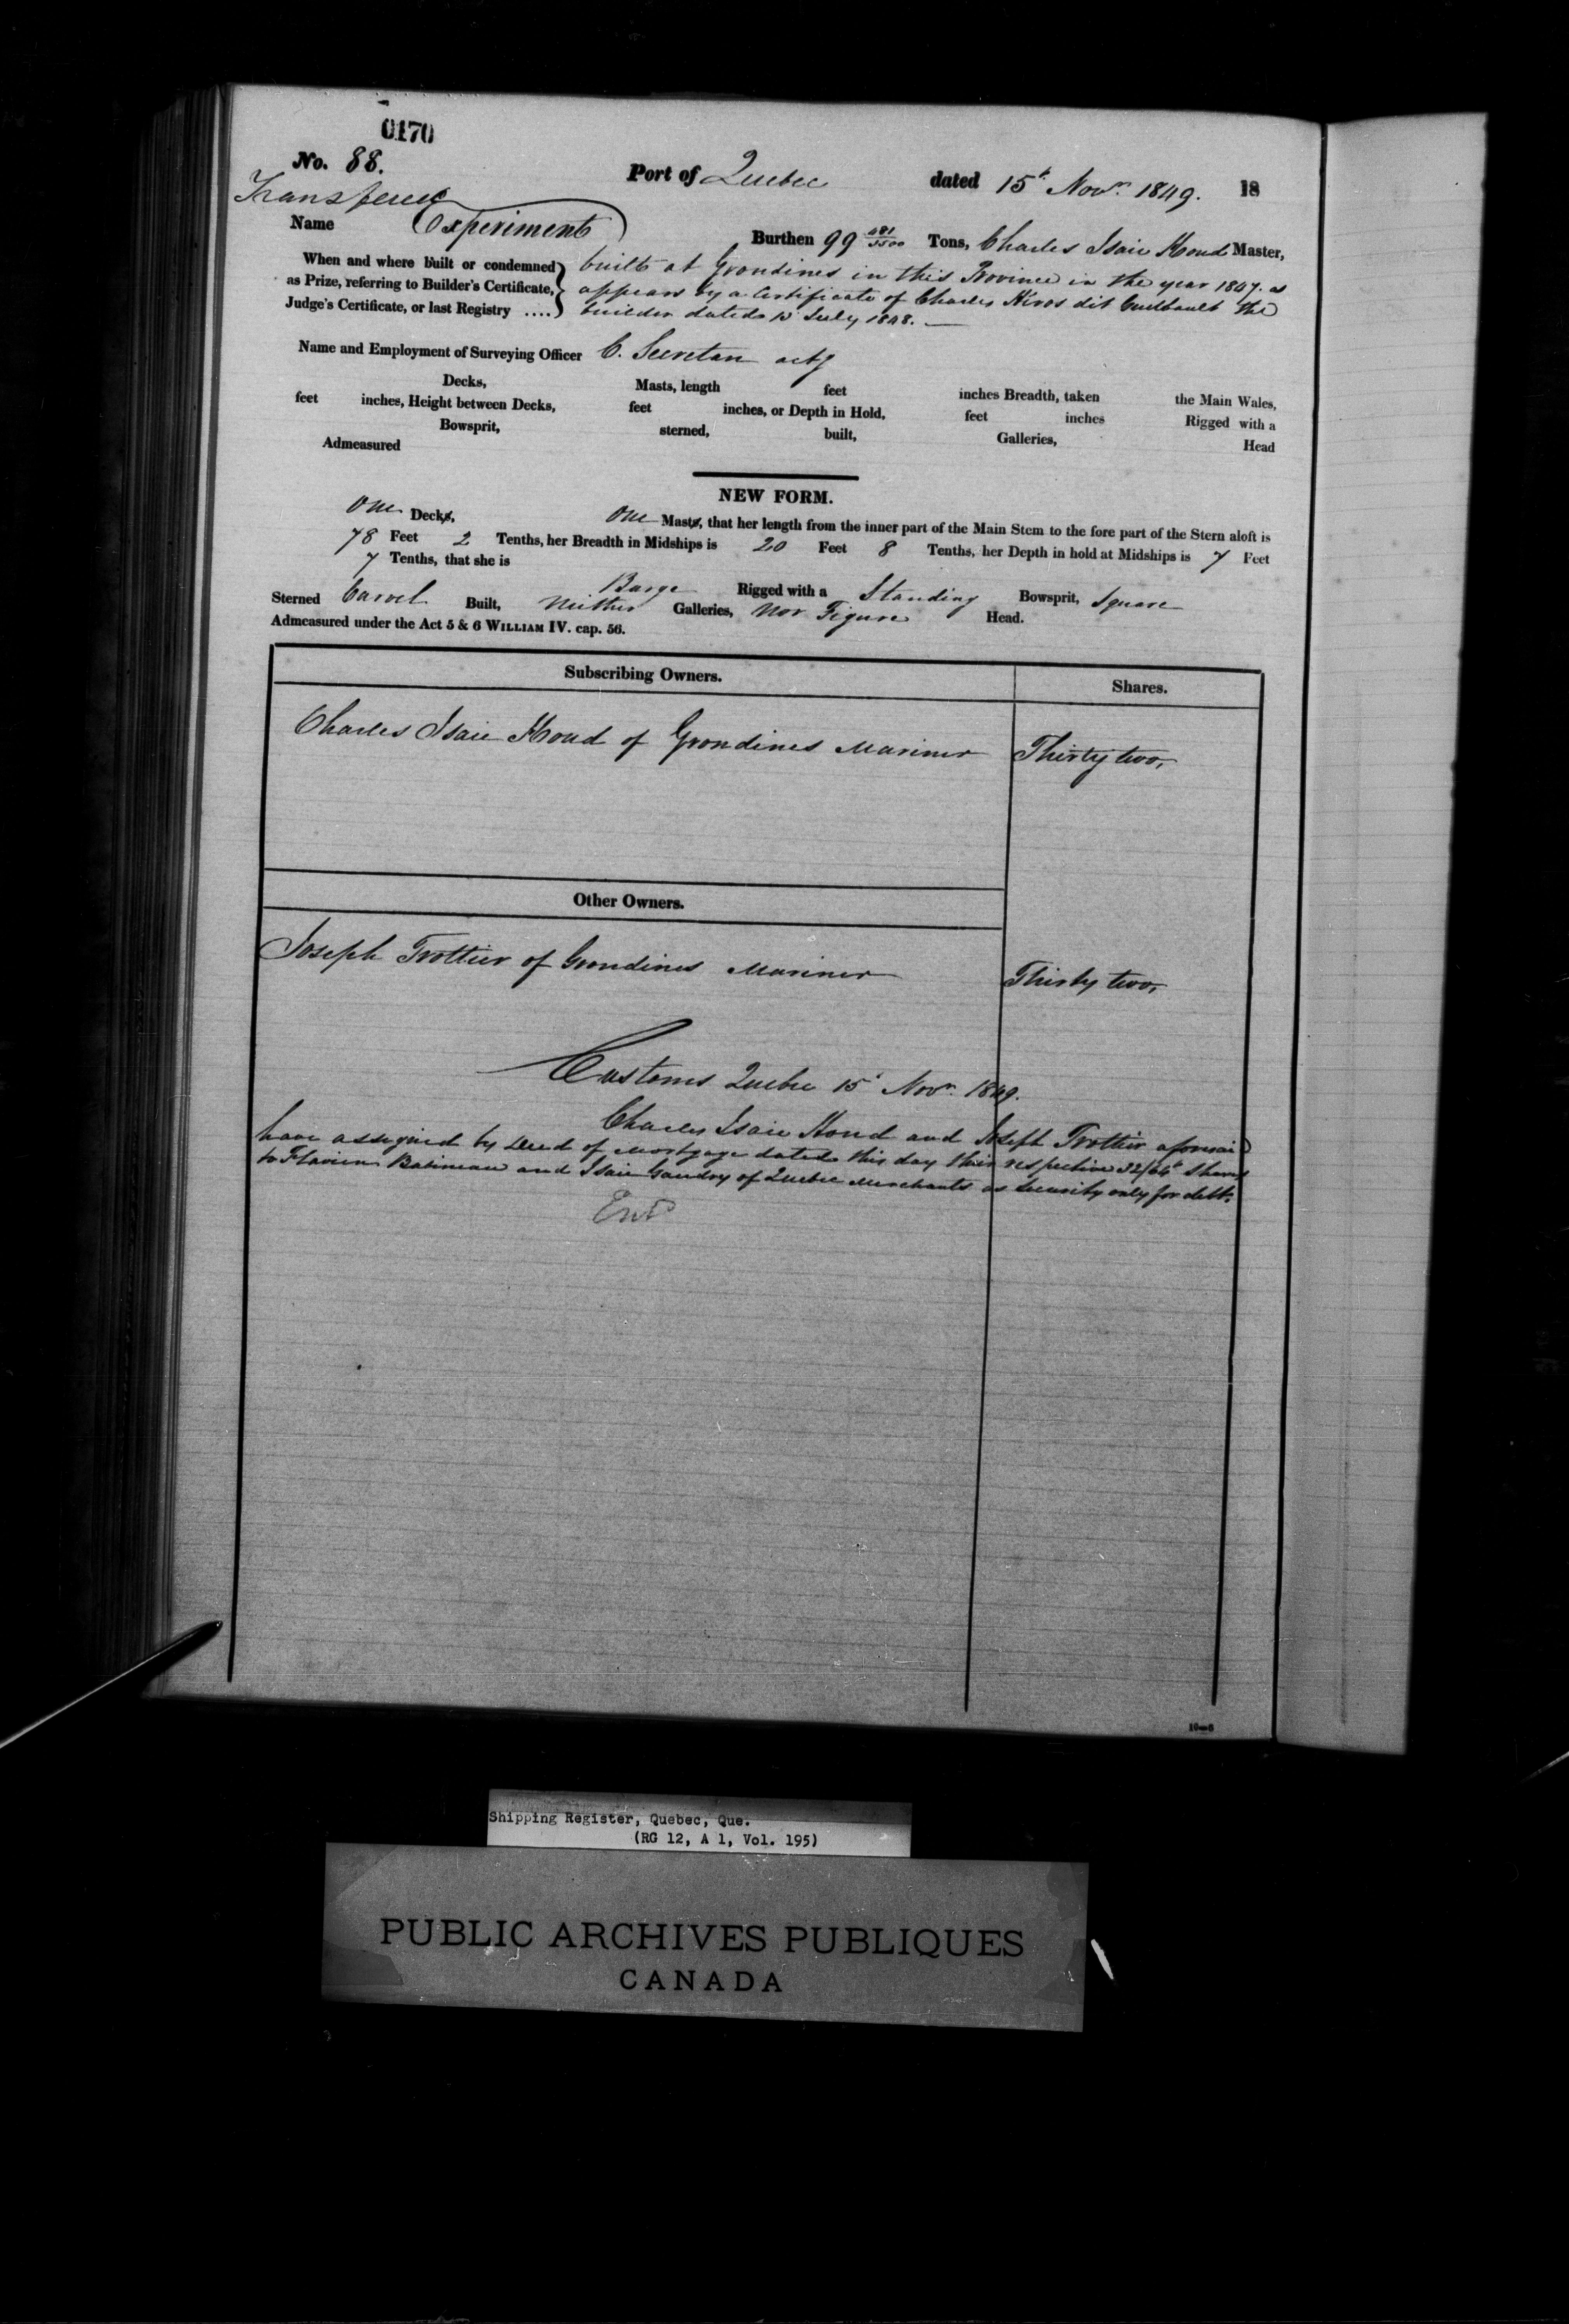 0170
No. 88.
Port of Quebec dated 15t Novr. 1849. 18
Transferred
Name Experiment Burthen 99 481/3500 Tons, Charles Isaie Hond Master,
When and where built or condemned as Prize, referring to Builder's Certificate, Judge's Certificate, or last Registry ....
built at Grondines in this Province in the year 1847. as
appears by a Certificate of Charles dit Guilbault the
builder dated 10 July 1848. —
Name and Employment of Surveying Officer C. Secretan actg
Decks, Masts, length feet inches Breadth, taken the Main Wales,
feet inches, Height between Decks, feet inches, or Depth in Hold, feet inches Rigged with a
Bowsprit, sterned, built, Galleries, Head
Admeasured
NEW FORM.
One Decks, One Masts, that her length from the inner part of the Main Stem to the fore part of the Stern aloft is
78 Feet 2 Tenths, her Breadth in Midships is 20 Feet 8 Tenths, her Depth in hold at Midships is 7 Feet
7 Tenths, that she is Barge Rigged with a Standing Bowsprit, Square
Sterned Carvel Built, Neither Galleries, Nor Figure Head.
Admeasured under the Act 5 & 6 WILLIAM IV. cap. 56.
Subscribing Owners. Shares.
Charles Isaie Hond of Grondines Mariner Thirty two,
Other Owners.
Joseph Trottier of Grondines Mariner Thirty two,
Customs Quebec 15t Novr. 1849.
Charles Isaie Hond and Joseph Trottier aforesaid
have assigned by Deed of Mortgage dated this day their respective 32/64t Shares
to Flavien Babineau and Isaie Gaudry of Quebec Merchants as Security only for debt.
Entd
10—6
Shipping Register, Quebec, Que.
(RG 12, A 1, Vol. 195)
PUBLIC ARCHIVES PUBLIQUES
CANADA